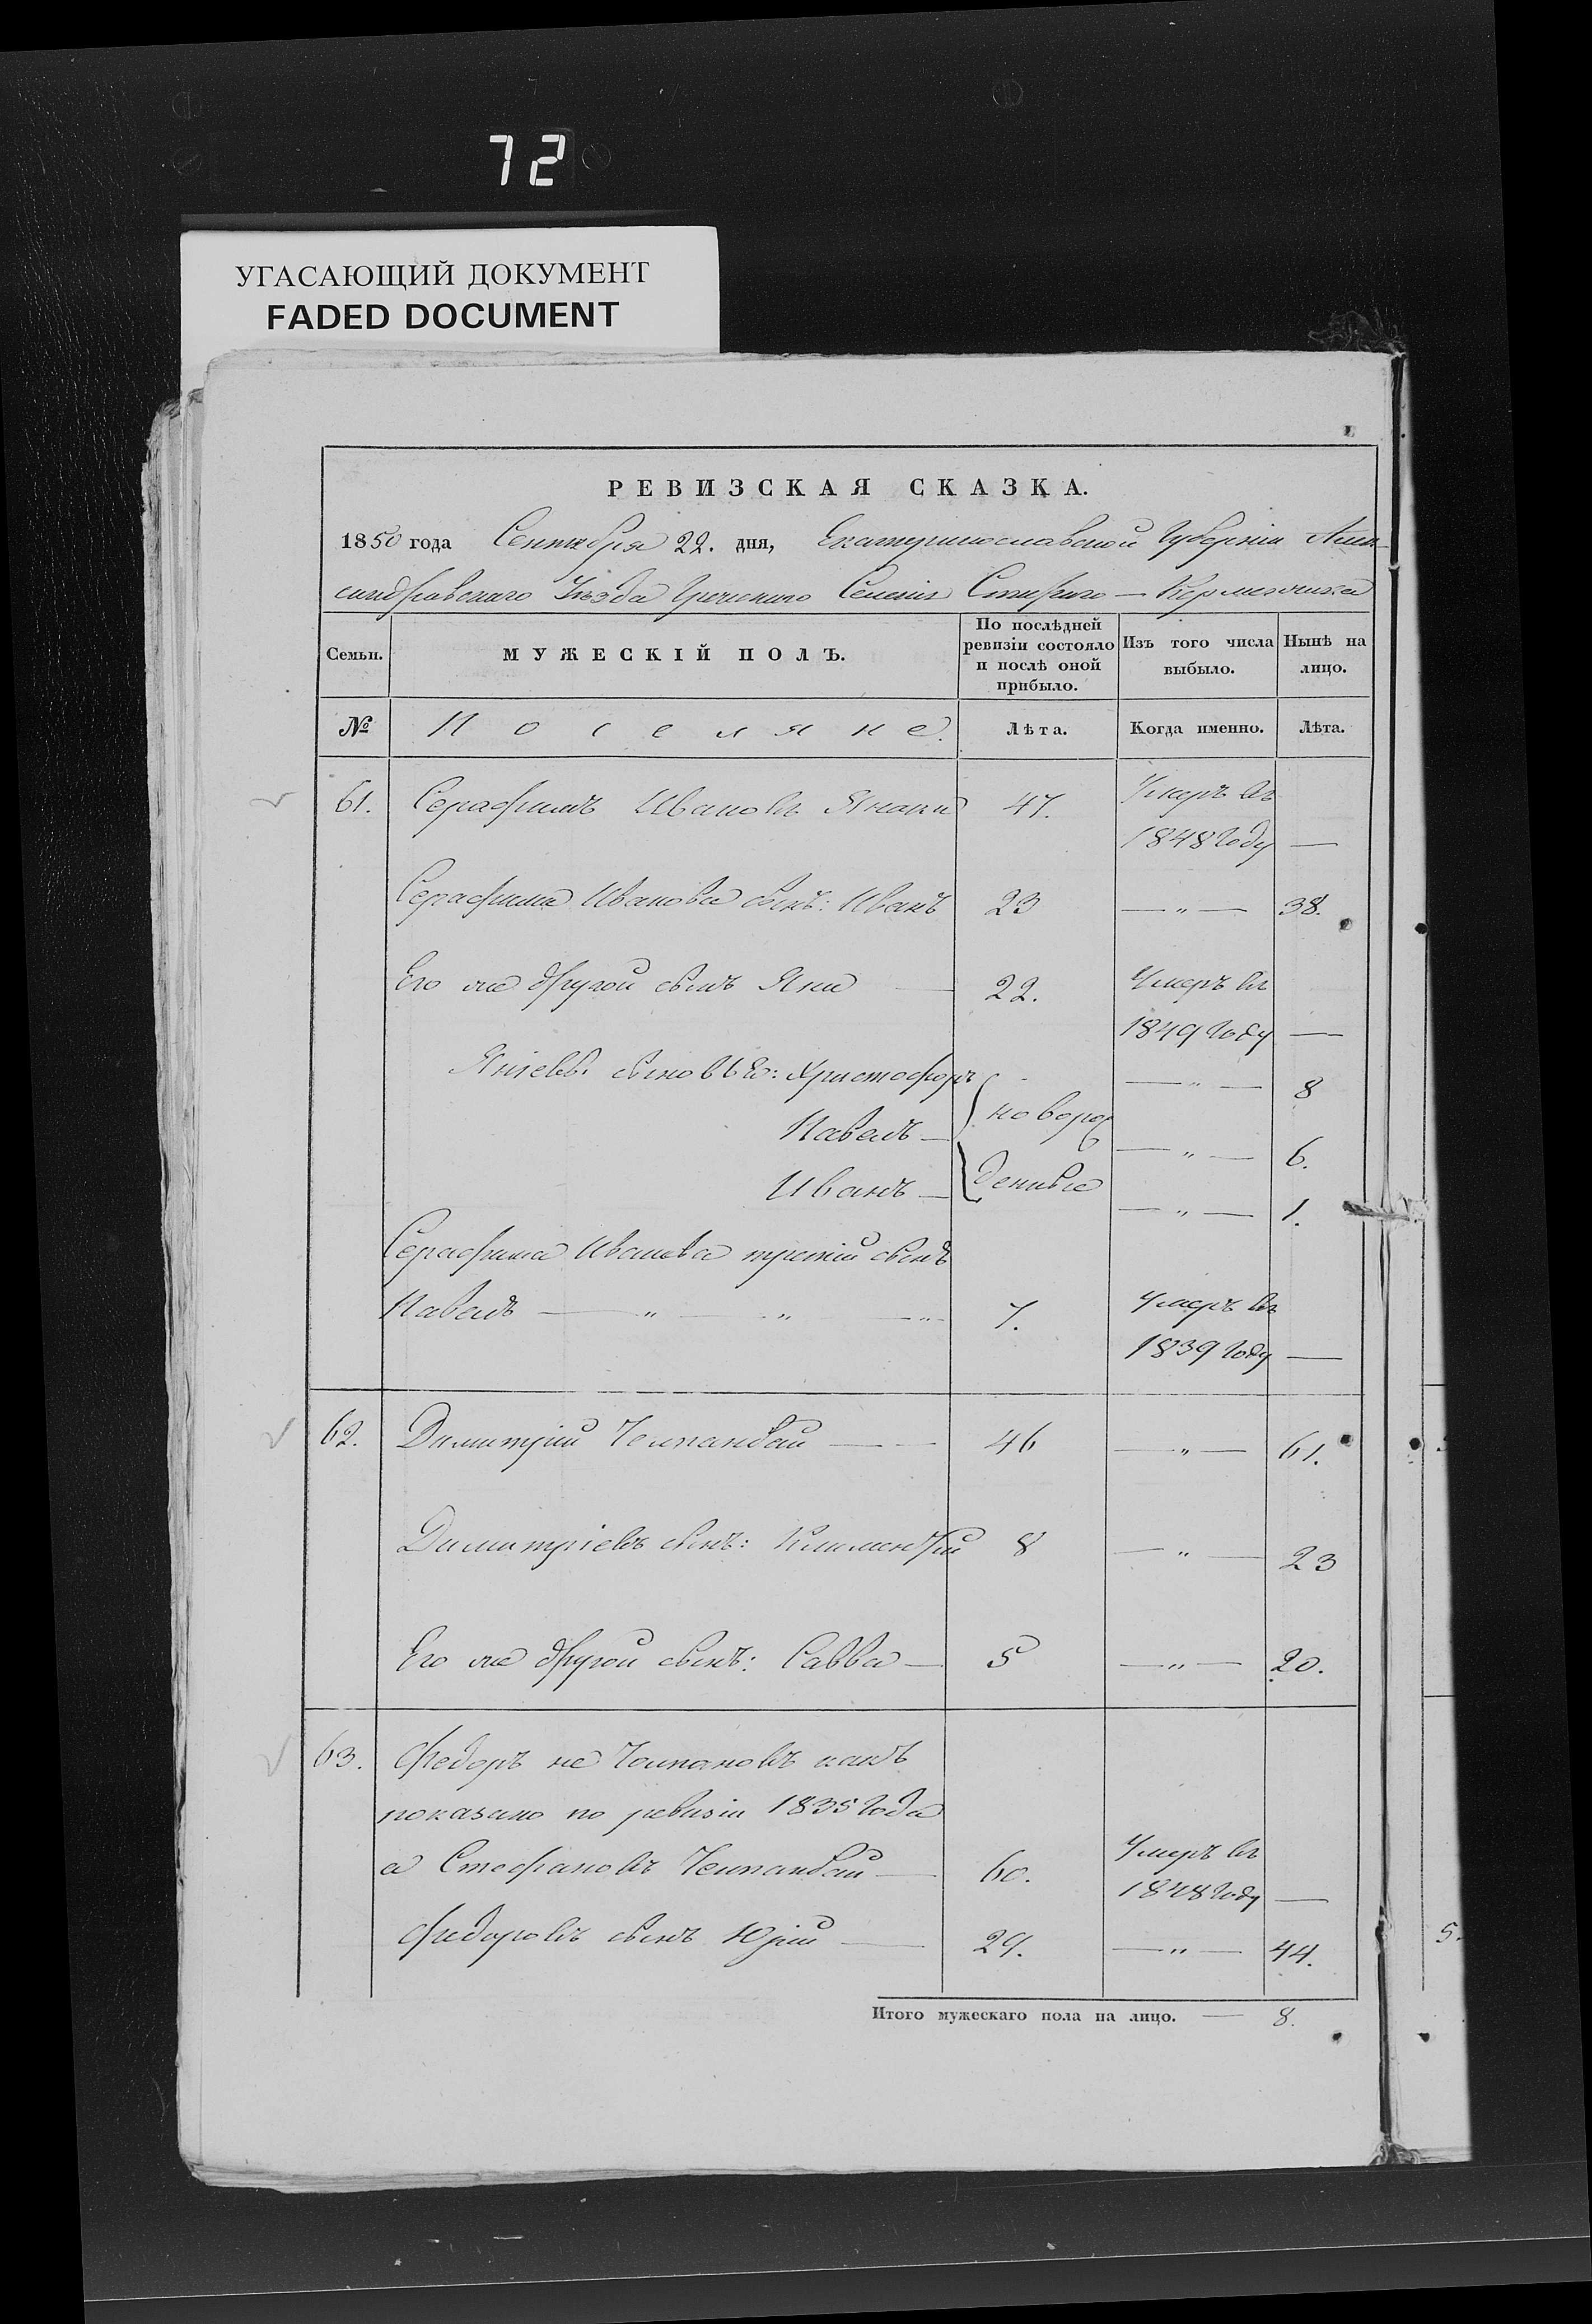 72
УГАСАЮЩИЙ ДОКУМЕНТ
FADED DOCUMENT
РЕВИЗСКАЯ СКАЗКА.
1850 года Сентября 22. дня, Екатеринославской Губерніи Алек-
сандровскаго Уѣзда Греческаго Селенія Стараго — Керменчика
Семьи. МУЖЕСКІЙ ПОЛЪ. По послѣдней ревизіи состояло и послѣ оной прибыло. Изъ того числа выбыло. Нынѣ на лицо.
№ Поселяне. Лѣта. Когда именно. Лѣта.
61. Серафимъ Ивановъ Янаки 47. Умеръ въ
1848 году —
Серафима Иванова сынъ: Иванъ 23 — " — 38.
Его же другой сынъ Яни — 22. Умеръ въ
1849 году —
Яніевы сыновья: Христофоръ — " — 8
новорож
Павелъ — — " — 6.
денные
Иванъ — — " — 1.
Серафима Иванова третій сынъ
Павелъ — " — " — " 7. Умеръ въ
1839 году —
62. Димитрій Челпанбай — — 46 — " — 61.
Димитріевъ сынъ: Климентій 8 — " — 23
Его же другой сынъ: Савва — 5 — " — 20.
63. Федоръ не Челпановъ какъ
показано по ревизіи 1835 года
а Стефановъ Челпанбай — 60. Умеръ въ
1848 году —
Федоровъ сынъ Юрій — 29. — " — 44.
Итого мужескаго пола на лицо. — 8.
5.